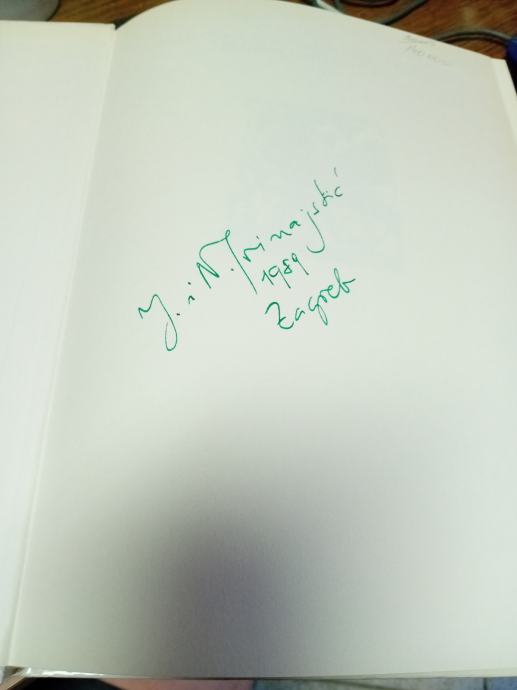 J. i N. Trinajstić
1989
Zagreb